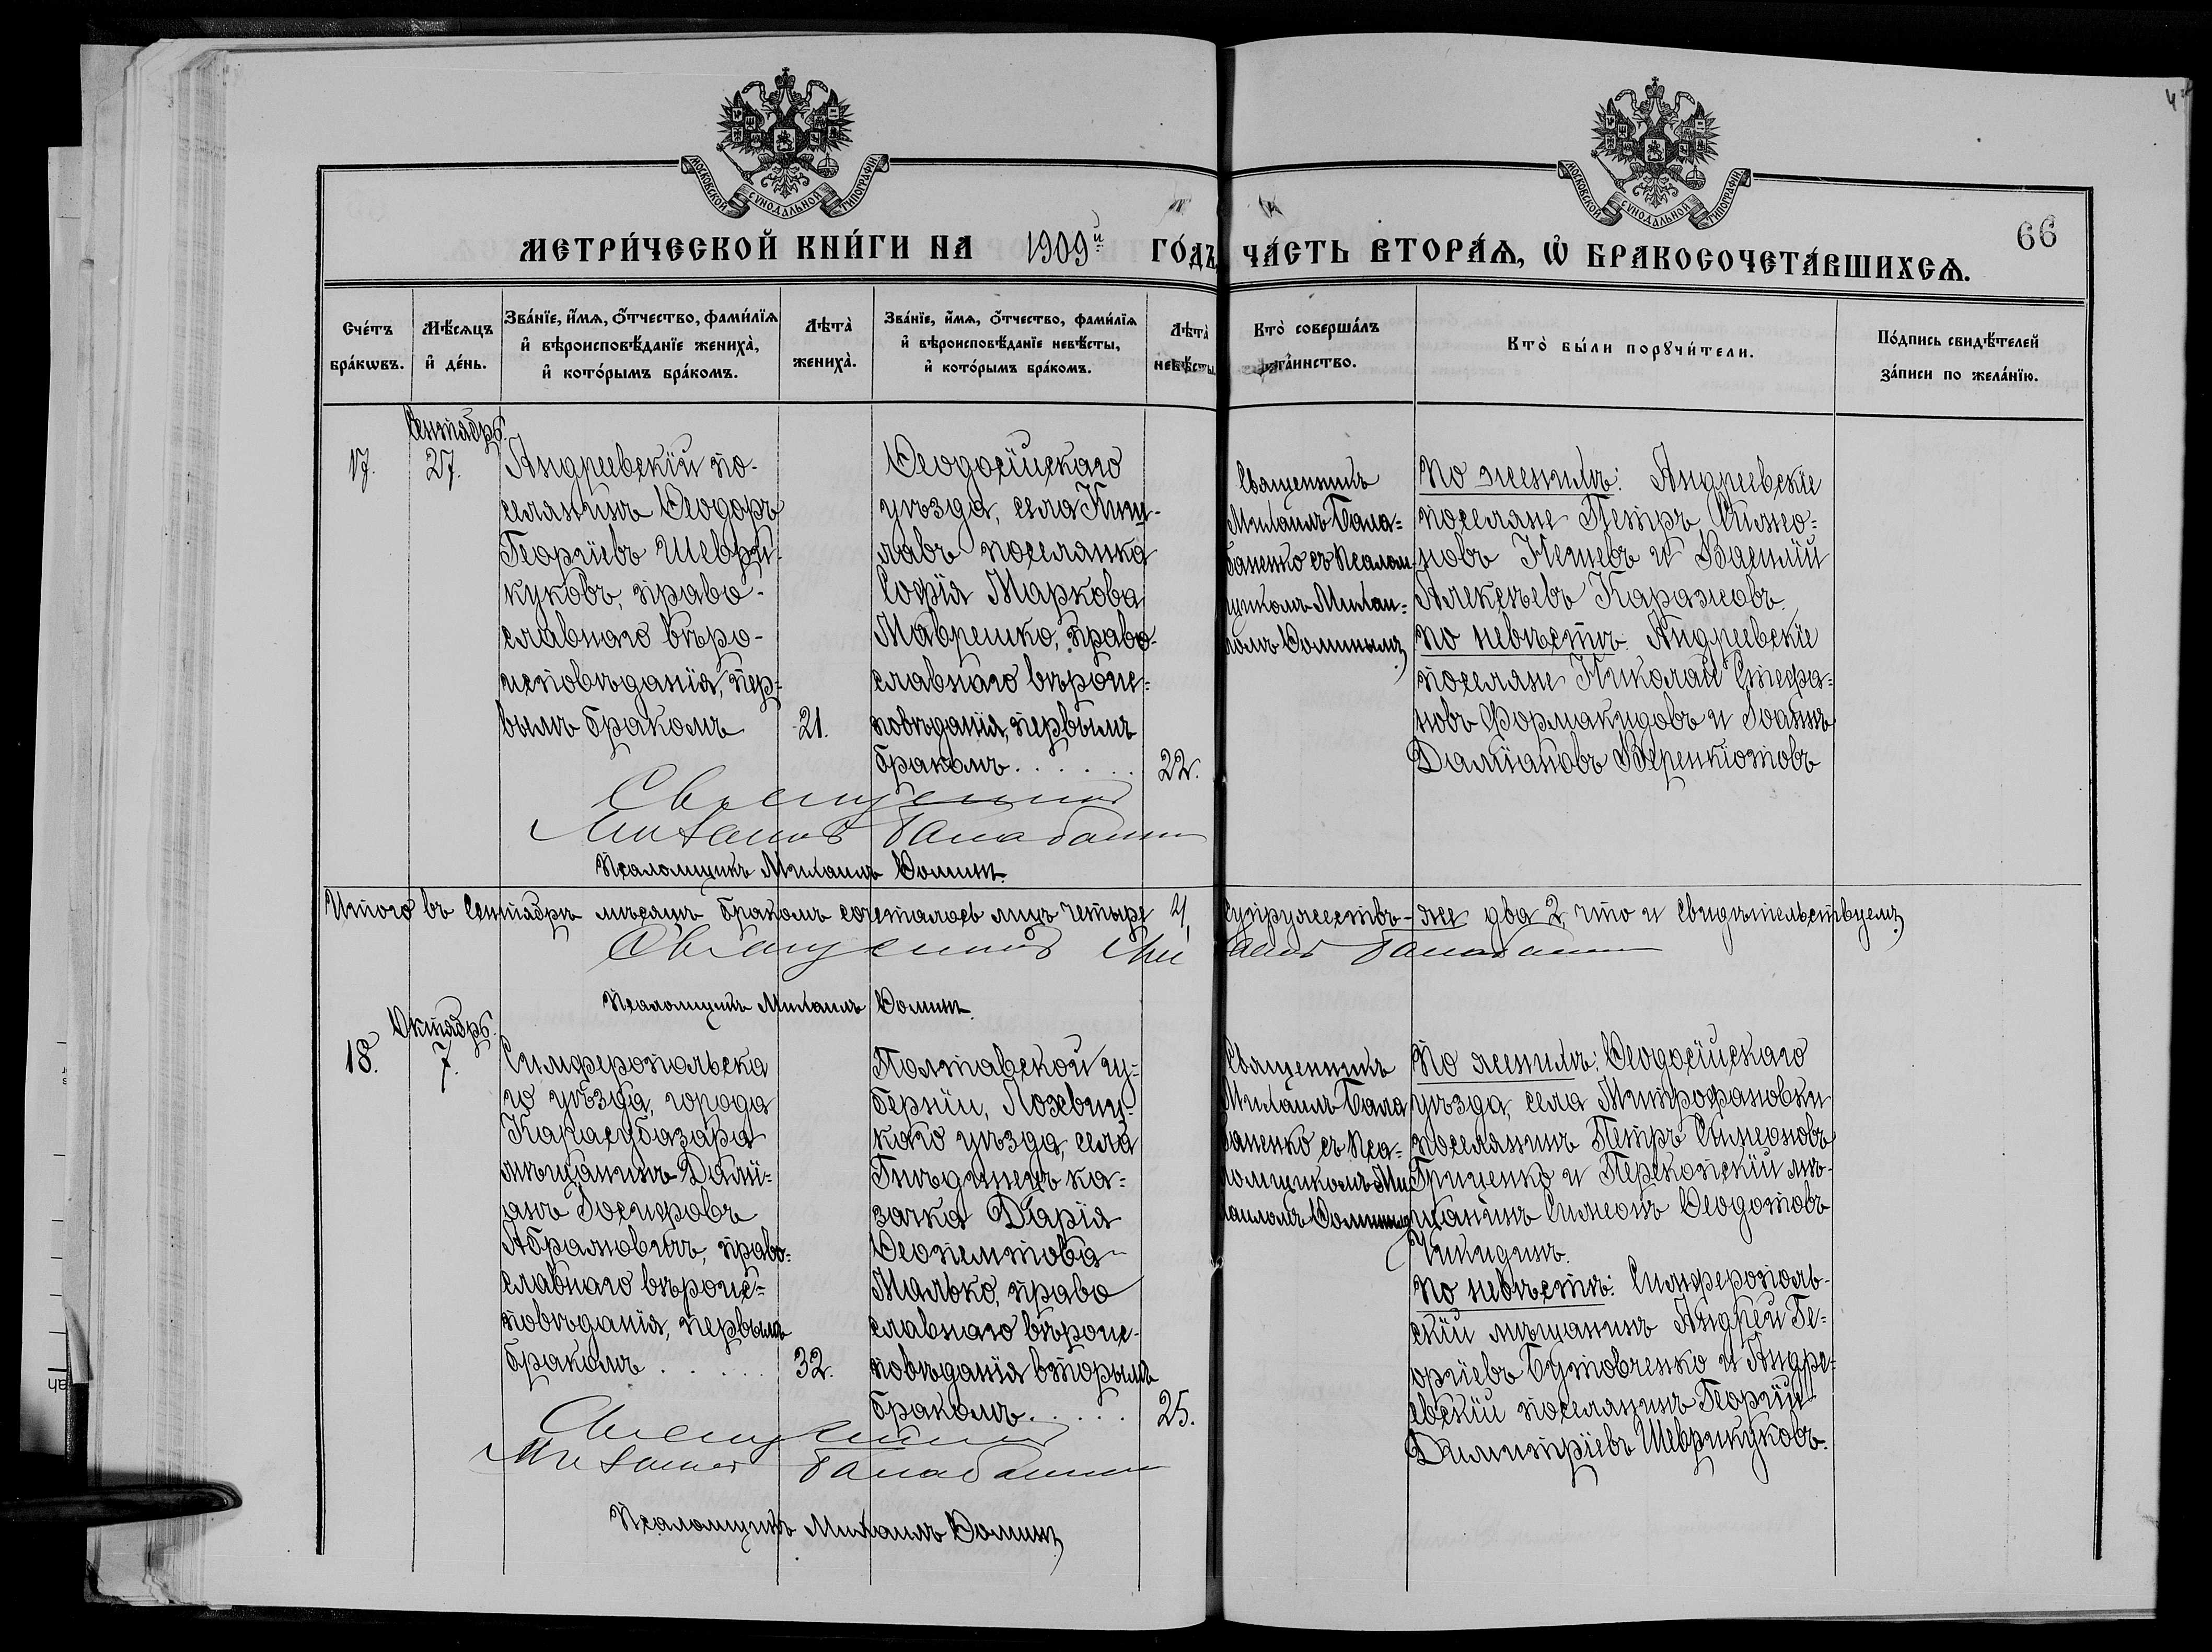 МОСКОВСКОЙ СУНОДАЛЬНОЙ ТИПОГРАФІИ
МОСКОВСКОЙ СУНОДАЛЬНОЙ ТИПОГРАФІИ
66
МЕТРИ́ЧЕСКОЙ КНИ́ГИ НА 1909й ГО́ДЪ, ЧА́СТЬ ВТОРА́Ѧ, Ѡ҆ БРАКОСОЧЕТА́ВШИХСѦ.
Сче́тъ
бра́кѡвъ.
Мѣ́сѧцъ
и҆ де́нь.
Зва́нїе, и҆́мѧ, ѻ҆́тчество, фами́лїѧ
и҆ вѣроисповѣ́данїе жениха̀,
и҆ кото́рымъ бра́комъ.
Лѣта̀
жениха̀.
Зва́нїе, и҆́мѧ, ѻ҆́тчество, фами́лїѧ
и҆ вѣроисповѣ́данїе невѣ́сты,
и҆ кото́рымъ бра́комъ.
Лѣта̀
невѣ́сты.
Кто̀ соверша́лъ
та́инство.
Кто̀ бы́ли порꙋчи́тели.
По́дпись свидѣ́телей
за́писи по жела́нїю.
Сентябрь.
17.
27.
Андреевскій по-
селянинъ Ѳеодоръ
Георгіевъ Шеври-
куковъ, право-
славнаго вѣро-
исповѣданія, пер-
вымъ бракомъ
21.
Ѳеодосійскаго
уѣзда, села Киш-
лавъ поселянка
Софія Маркова
Маврешко, право-
славнаго вѣроис-
повѣданія, первымъ
бракомъ. . . . . .
22.
Священникъ
Михаилъ Бала-
баненко съ псалом-
щикомъ Михаи-
ломъ Ѳоминымъ
По женихѣ: Андреевскіе
поселяне Петръ Симео-
новъ Нешевъ и Василій
Алексѣевъ Каражовъ.
По невѣстѣ: Андреевскіе
поселяне Николай Стефа-
новъ Формакидовъ и Іоаннъ
Даміановъ Веренкіотовъ
Священникъ
Михаилъ Балабаненко
Псаломщикъ Михаилъ Ѳоминъ.
Итого въ Сентябрѣ мѣсяцѣ бракомъ сочеталось лицъ четыре 4, супружествъ-же два 2 что и свидѣтельствуемъ
Священникъ Михаилъ Балабаненко
Псаломщикъ Михаилъ Ѳоминъ.
Октябрь.
18.
7.
Симферопольска
го уѣзда, города
Карасубазара
мѣщанинъ Дамі-
анъ Іосифовъ
Абрамовичъ, право-
славнаго вѣроис-
повѣданія, первымъ
бракомъ . . . . .
32.
Полтавской гу-
берніи, Лохвиц-
каго уѣзда, села
Гнѣдинецъ ка-
зачка Дарія
Ѳеопемптова
Малько, право
славнаго вѣроис-
повѣданія вторымъ
бракомъ. . . . .
25.
Священникъ
Михаилъ Бала
баненко съ пса-
ломщикомъ Ми
хаиломъ Ѳоминымъ
По женихѣ: Ѳеодосійскаго
уѣзда, села Митрофановки
поселянинъ Петръ Симеоновъ
Гриценко и Перекопскій мѣ-
щанинъ Симеонъ Ѳеодотовъ
Чикидинъ.
По невѣстѣ: Симферополь-
скій мѣщанинъ Андрей Ге-
оргіевъ Бутовченко и Андре-
евскій поселянинъ Георгій
Димитріевъ Шеврикуковъ.
Священникъ
Михаилъ Балабаненко
Псаломщикъ Михаилъ Ѳоминъ